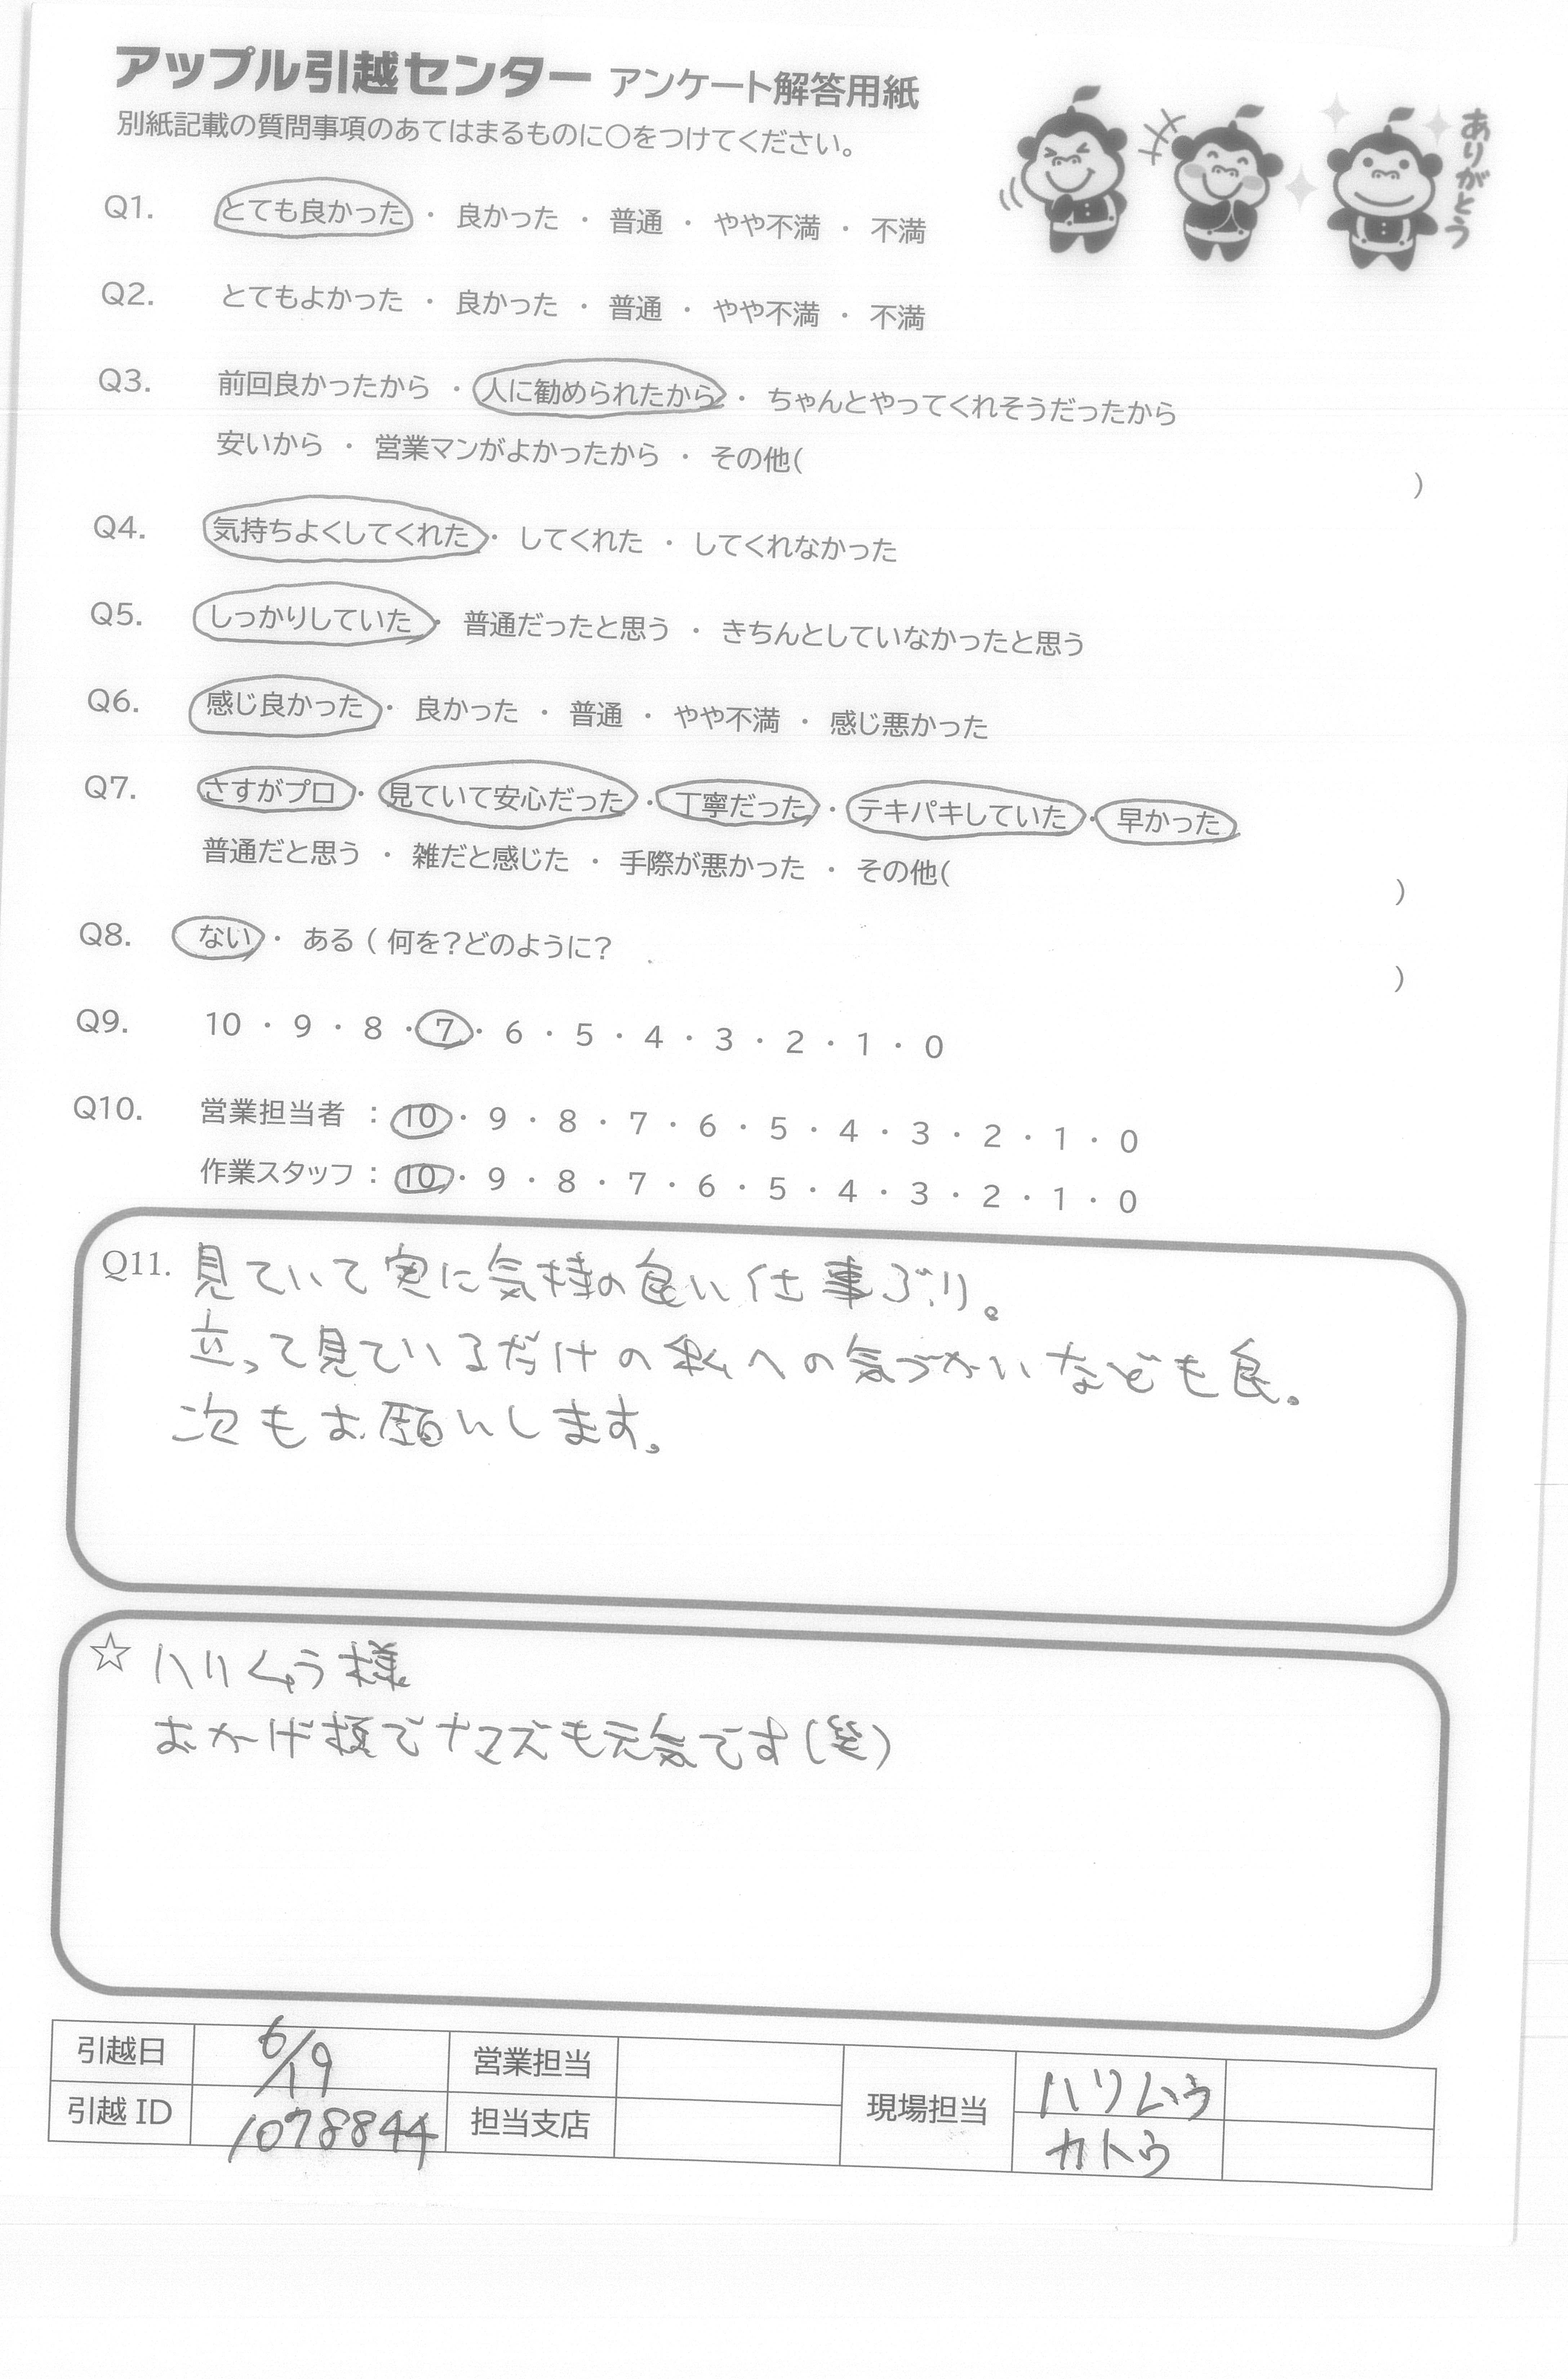 アップル引越センター アンケート解答用紙
別紙記載の質問事項のあてはまるものに○をつけてください。
ありがとう
Q1. とても良かった ・ 良かった ・ 普通 ・ やや不満 ・ 不満
Q2. とてもよかった ・ 良かった ・ 普通 ・ やや不満 ・ 不満
Q3. 前回良かったから ・ 人に勧められたから ・ ちゃんとやってくれそうだったから
安いから ・ 営業マンがよかったから ・ その他( )
Q4. 気持ちよくしてくれた ・ してくれた ・ してくれなかった
Q5. しっかりしていた ・ 普通だったと思う ・ きちんとしていなかったと思う
Q6. 感じ良かった ・ 良かった ・ 普通 ・ やや不満 ・ 感じ悪かった
Q7. さすがプロ ・ 見ていて安心だった ・ 丁寧だった ・ テキパキしていた ・ 早かった
普通だと思う ・ 雑だと感じた ・ 手際が悪かった ・ その他( )
Q8. ない ・ ある ( 何を?どのように? )
Q9. 10 ・ 9 ・ 8 ・ 7 ・ 6 ・ 5 ・ 4 ・ 3 ・ 2 ・ 1 ・ 0
Q10. 営業担当者 : 10 ・ 9 ・ 8 ・ 7 ・ 6 ・ 5 ・ 4 ・ 3 ・ 2 ・ 1 ・ 0
作業スタッフ : 10 ・ 9 ・ 8 ・ 7 ・ 6 ・ 5 ・ 4 ・ 3 ・ 2 ・ 1 ・ 0
Q11. 見ていて実に気持の良い仕事ぶり。
立って見ているだけの私への気づかいなども良。
次もお願いします。
☆ 様
おかげ様でナマズも元気です(笑)
引越日 6/19 営業担当 現場担当 ハリムゥ
引越 ID 1078844 担当支店 カトゥ